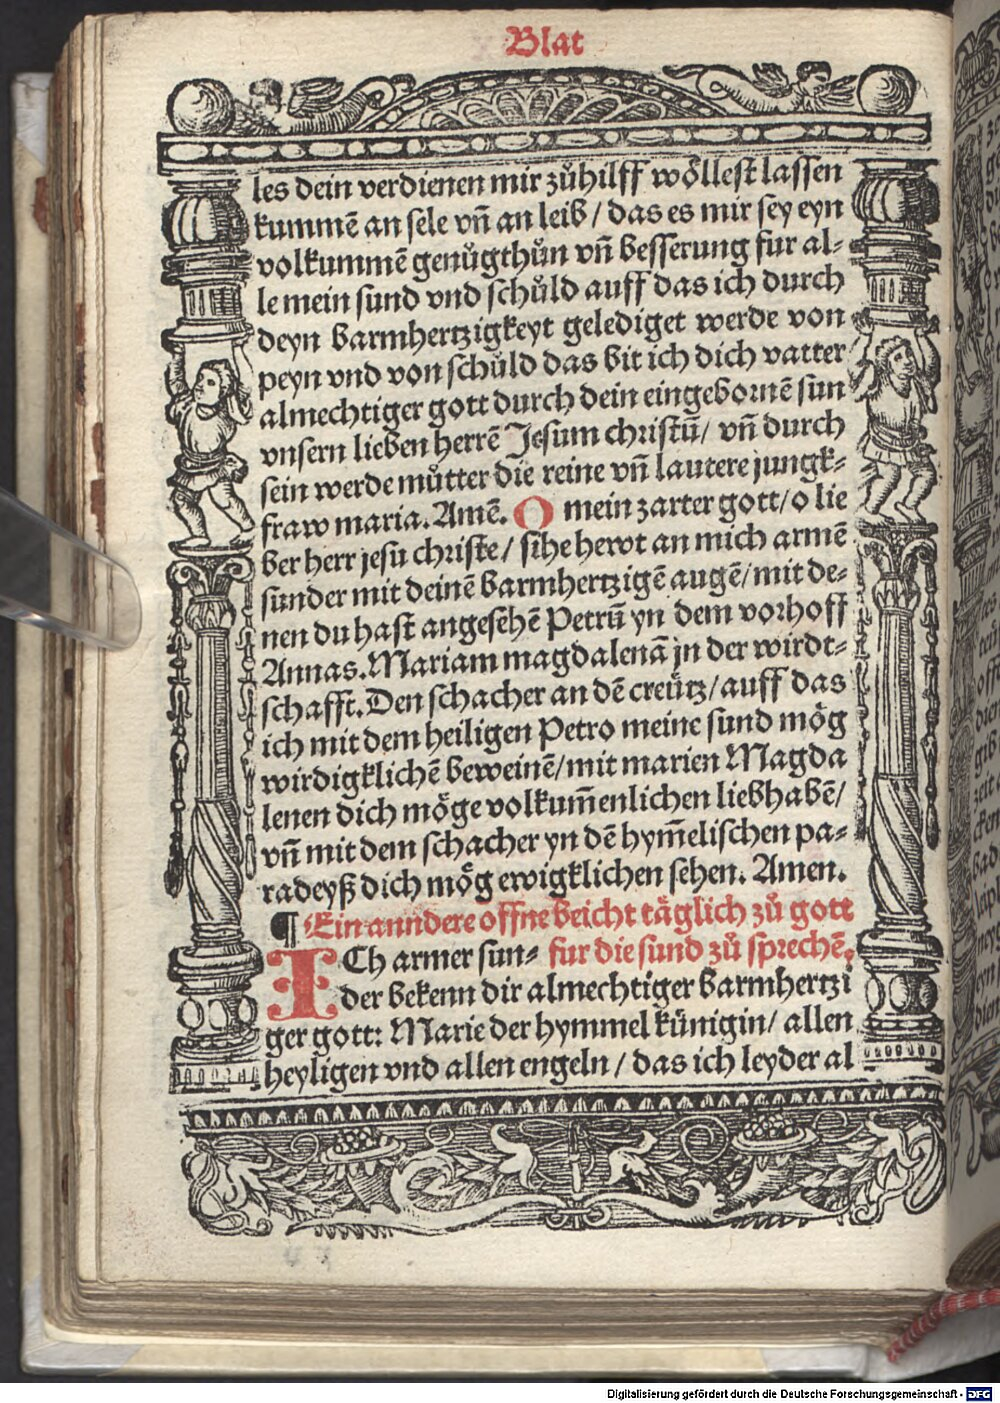 Blat
les dein verdienen mir zůhilff wöllest lassen
kummē an sele vn̄ an leib / das es mir sey eyn
volkummē genůgthůn vn̄ besserung fur al⸗
le mein sund vnd schůld auff das ich durch
deyn barmhertzigkeyt gelediget werde von
peyn vnd von schůld das bit ich dich vatter
almechtiger gott durch dein eingebornē sun
vnsern lieben herrē Jesum christū / vn̄ durch
sein werde můtter die reine vn̄ lautere jungk⸗
fraw maria. Amē. O mein zarter gott / o lie
ber herr jesu christe / sihe hewt an mich armē
sunder mit deinē barmhertzigē augē / mit de⸗
nen du hast angesehē Petrū yn dem vorhoff
Annas. Mariam magdalenā jn der wirdt⸗
schafft. Den schacher an dē creütz / auff das
ich mit dem heiligen Petro meine sund mög
wirdigklichē beweinē / mit marien Magda
lenen dich möge volkum̄enlichen liebhabē /
vn̄ mit dem schacher yn dē hym̄elischen pa⸗
radeyß dich mög ewigklichen sehen. Amen.
¶ Ein anndere offne beicht täglich zů gott
fur die sund zů sprechē.
ICh armer sun⸗
der bekenn dir almechtiger barmhertzi
ger gott: Marie der hymmel künigin / allen
heyligen vnd allen engeln / das ich leyder al
Digitalisierung gefördert durch die Deutsche Forschungsgemeinschaft - DFG